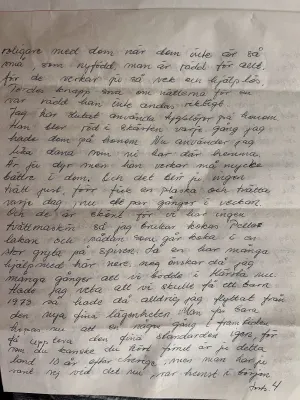 roligare med dom när dom inte är så
små som nyfödd, man är rädd för allt
för de verkar ju så vek och hjälplös.
Jordes knapp sova om nätterna för en
var rädd han inte andas riktigt.
Jag har slutat använda tygblöjor på honom
Han blev röd i skärten varje gång jag
hade dom på honom. Nu använder jag
Lika dana som ni har där hemma.
Är ju dyr men han verkar må mycke
bättre i dom. Och det blir ju ingen
tvätt just, förr fick en plaska och tvätta
varje dag, nu de par gånger i veckan.
Och de är skönt för vi har ingen
tvättmaskin så jag brukar koka
lakan och sådan som går koka i en
stor gryta på spisen. Ja en har många
hjälpmed här nere, meg önskar då jag
många gånger att vi bodde i Kärsta nu.
Hade jag veta att vi skulle få ett barn
1973 så hade då alldrig jag flyttat från
den nya fina lägenheten. Man får bara
hoppas nu att en någe gång i framtiden
få uppleva den fina standarden igen, för
som du kanske du hört förut är ju detta
land 10 år efter Sverige. Men man har ju
vant sej vid det nu, var hemst i början
forts. 4